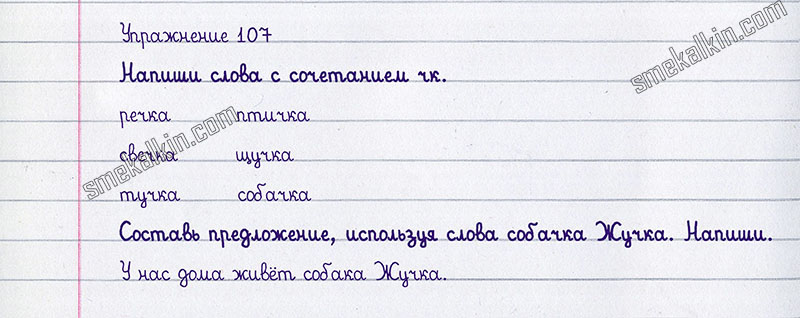 Упражнение 107
Напиши слова с сочетанием чк.
речка птичка
свечка щучка
тучка собачка
Составь предложение, используя слова собачка Жучка. Напиши.
У нас дома живёт собака Жучка.
smekalkin.com
smekalkin.com